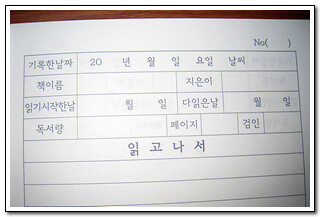 No( )
기록한날짜 20 년 월 일 요일 날씨
책이름 지은이
읽기시작한날 월 일 다읽은날 월 일
독서량 페이지 검인
읽 고 나 서